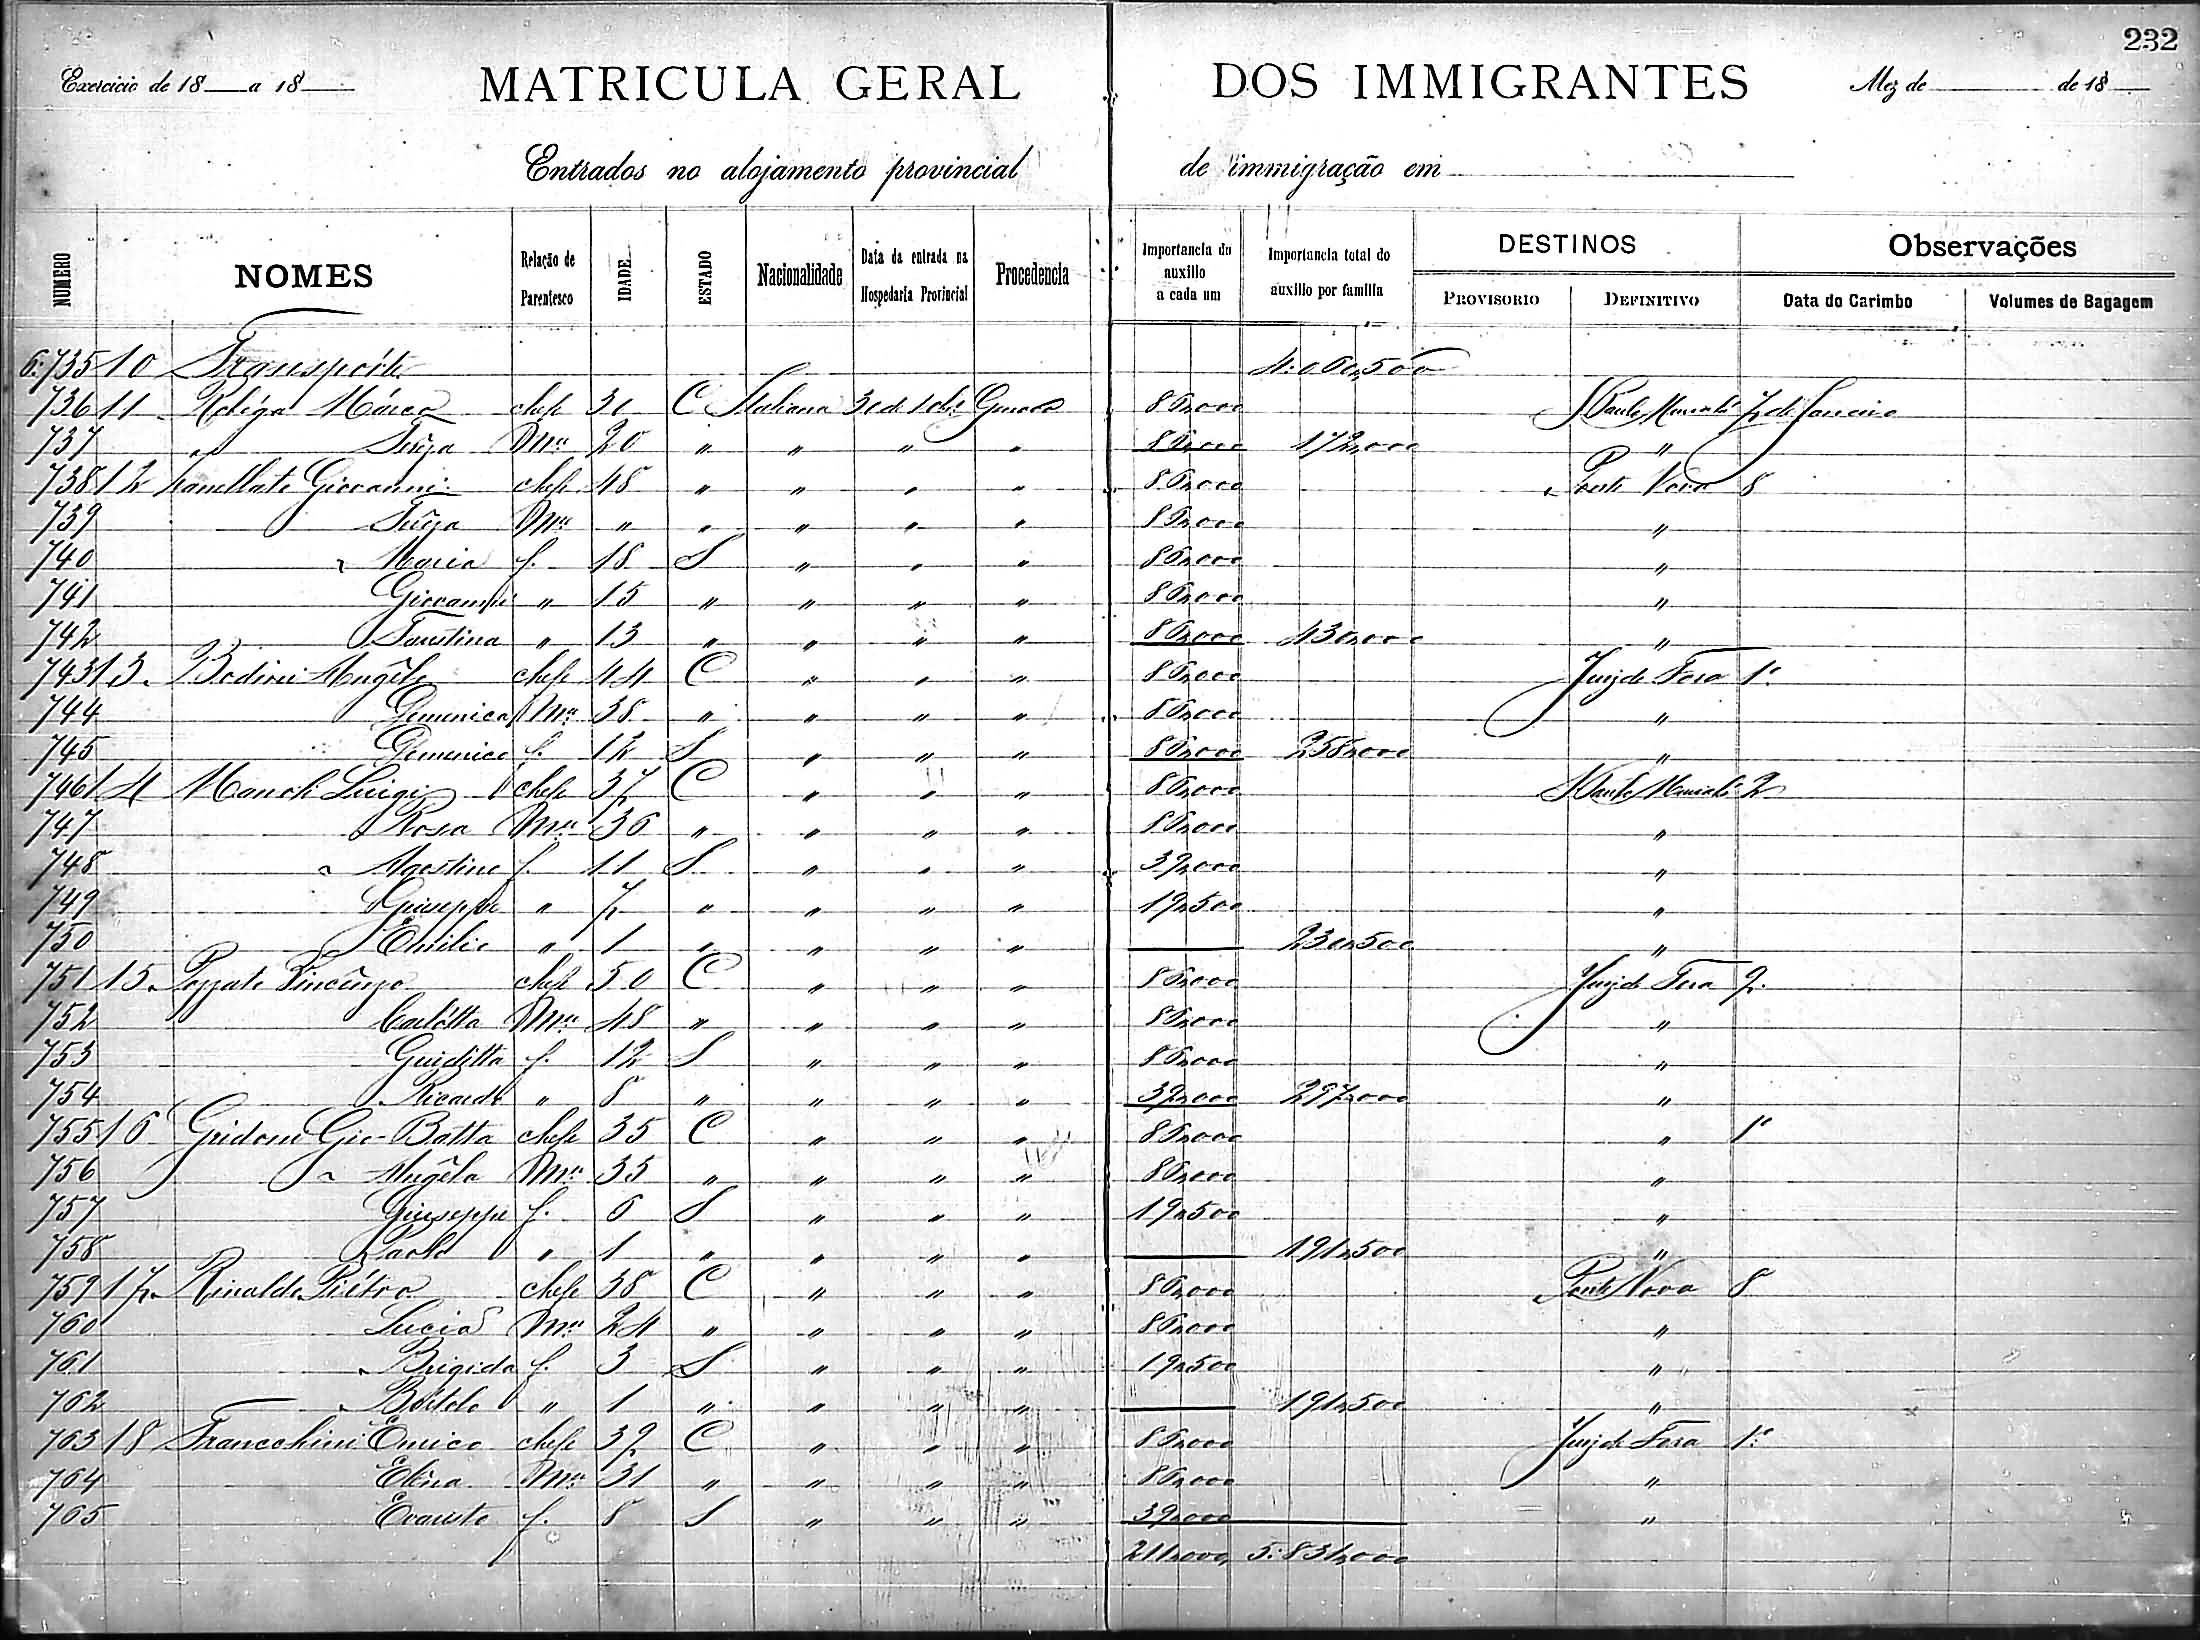 232
Exercicio de 18 a 18 MATRICULA GERAL DOS IMMIGRANTES Mez de de 18
Entrados no alojamento provincial de immigração em
NUMERO NOMES Relação de Parentesco IDADE ESTADO Nacionalidade Data da entrada na Hospedaria Provincial Procedencia Importancia do auxilio a cada um Importancia total do auxilio por familia DESTINOS PROVISORIO DEFINITIVO Observações Data do Carimbo Volumes de Bagagem
6:735 10 Transporte 4:060,500
736 11 chefe C Italiana Genova 86,000 7 de Janeiro
737 " Mer 20 " " " " 86,000 172,000 "
738 12 Giovanni chefe 48 " " " " 86,000 Ponte Nova 8
739 Mer " " " " " 86,000 "
740 " Maria f. 18 S " " " 86,000 "
741 Giovanni " 15 " " " " 86,000 "
742 Faustina " 13 " " " " 86,000 430,000 "
743 13 Bodini Angelo chefe 44 C " " " 86,000 Juiz de Fora 1º
744 Domenica Mer 38 " " " " 86,000 "
745 Domenico f. 12 S " " " 86,000 258,000 "
746 14 Luigi chefe 37 C " " " 86,000 2
747 Rosa Mer 36 " " " " 86,000 "
748 " Agostino f. 11 S " " " 39,000 "
749 Giuseppe " 7 " " " " 19,500 "
750 Emilio " 1 " " " " 230,500 "
751 15 Pozzato Vincenzo chefe 50 C " " " 86,000 Juiz de Fora
752 Carlotta Mer 48 " " " " 86,000 "
753 Guiditta f. 12 S " " " 86,000 "
754 Ricardo " 8 " " " " 39,000 297,000 "
755 16 Gridoni Gio-Batta chefe 35 C " " " 86,000 " 1º
756 " Angela Mer 35 " " " " 86,000 "
757 Giuseppe f. 6 S " " " 19,500 "
758 Paolo " 1 " " " " 191,500 "
759 17 Rinaldo Pietro chefe 38 C " " " 86,000 Ponte Nova 8
760 Lucia Mer 24 " " " " 86,000 "
761 Brigida f. 3 S " " " 19,500 "
762 Bortolo " 1 " " " " 191,500 "
763 18 Francchini Enrico chefe 39 C " " " 86,000 Juiz de Fora 1º
764 Mer 31 " " " " 86,000 "
765 Evaristo f. 8 S " " " 39,000 "
211,000 5:831,000